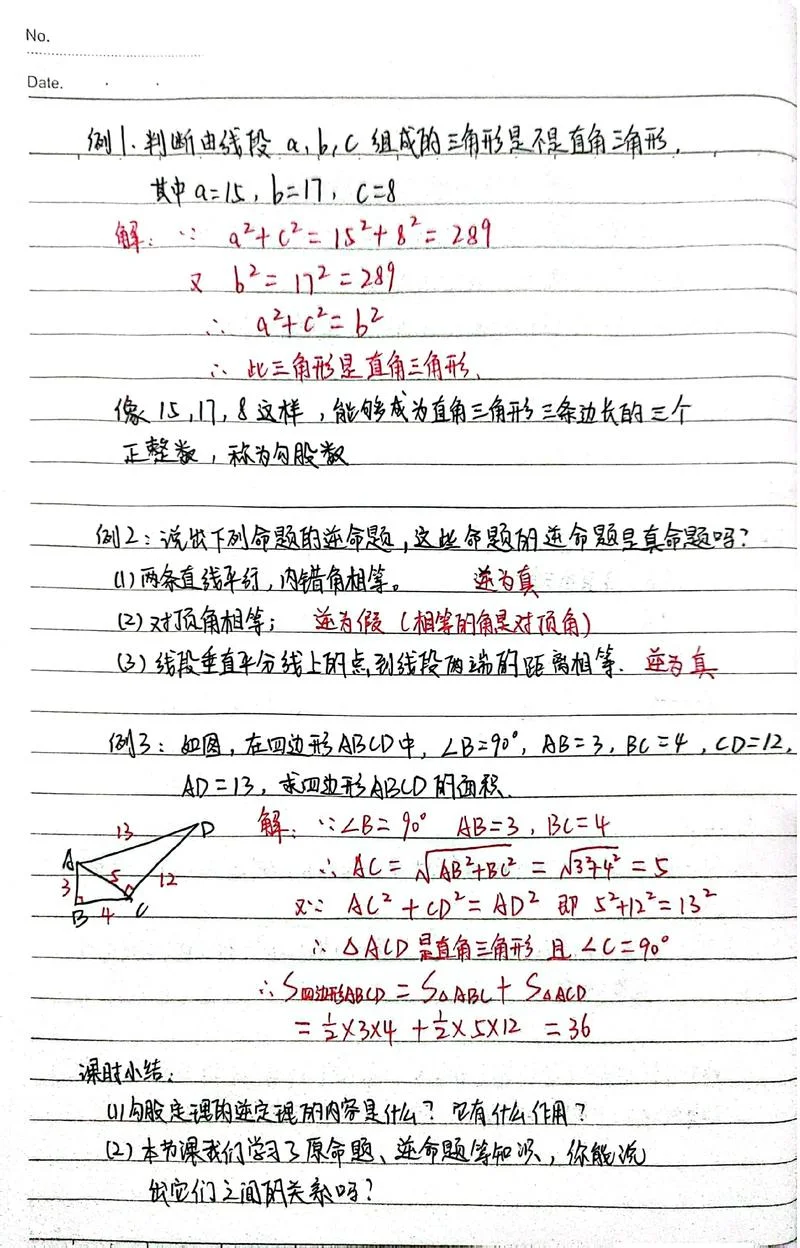 No.
Date.
例1.判断由线段 a,b,c 组成的三角形是不是直角三角形.
其中 a=15, b=17, c=8
解: ∵ a²+c²=15²+8²=289
又 b²=17²=289
∴ a²+c²=b²
∴ 此三角形是直角三角形.
像 15,17,8 这样,能够成为直角三角形三条边长的三个
正整数,称为勾股数
例2:说出下列命题的逆命题,这些命题的逆命题是真命题吗?
(1)两条直线平行,内错角相等。 逆为真
(2)对顶角相等; 逆为假(相等的角是对顶角)
(3)线段垂直平分线上的点到线段两端的距离相等. 逆为真
例3:如图,在四边形ABCD中, ∠B=90°, AB=3, BC=4, CD=12,
AD=13,求四边形ABCD的面积.
解: ∵∠B=90° AB=3, BC=4
∴ AC=√(AB²+BC²)=√(3²+4²)=5
又∵ AC²+CD²=AD² 即 5²+12²=13²
∴ △ACD是直角三角形 且 ∠C=90°
∴S四边形ABCD=S△ABC+S△ACD
=½×3×4+½×5×12 =36
A
B
C
D
13
5
12
3
4
课时小结:
(1)勾股定理的逆定理的内容是什么?它有什么作用?
(2)本节课我们学习了原命题、逆命题等知识,你能说
出它们之间的关系吗?